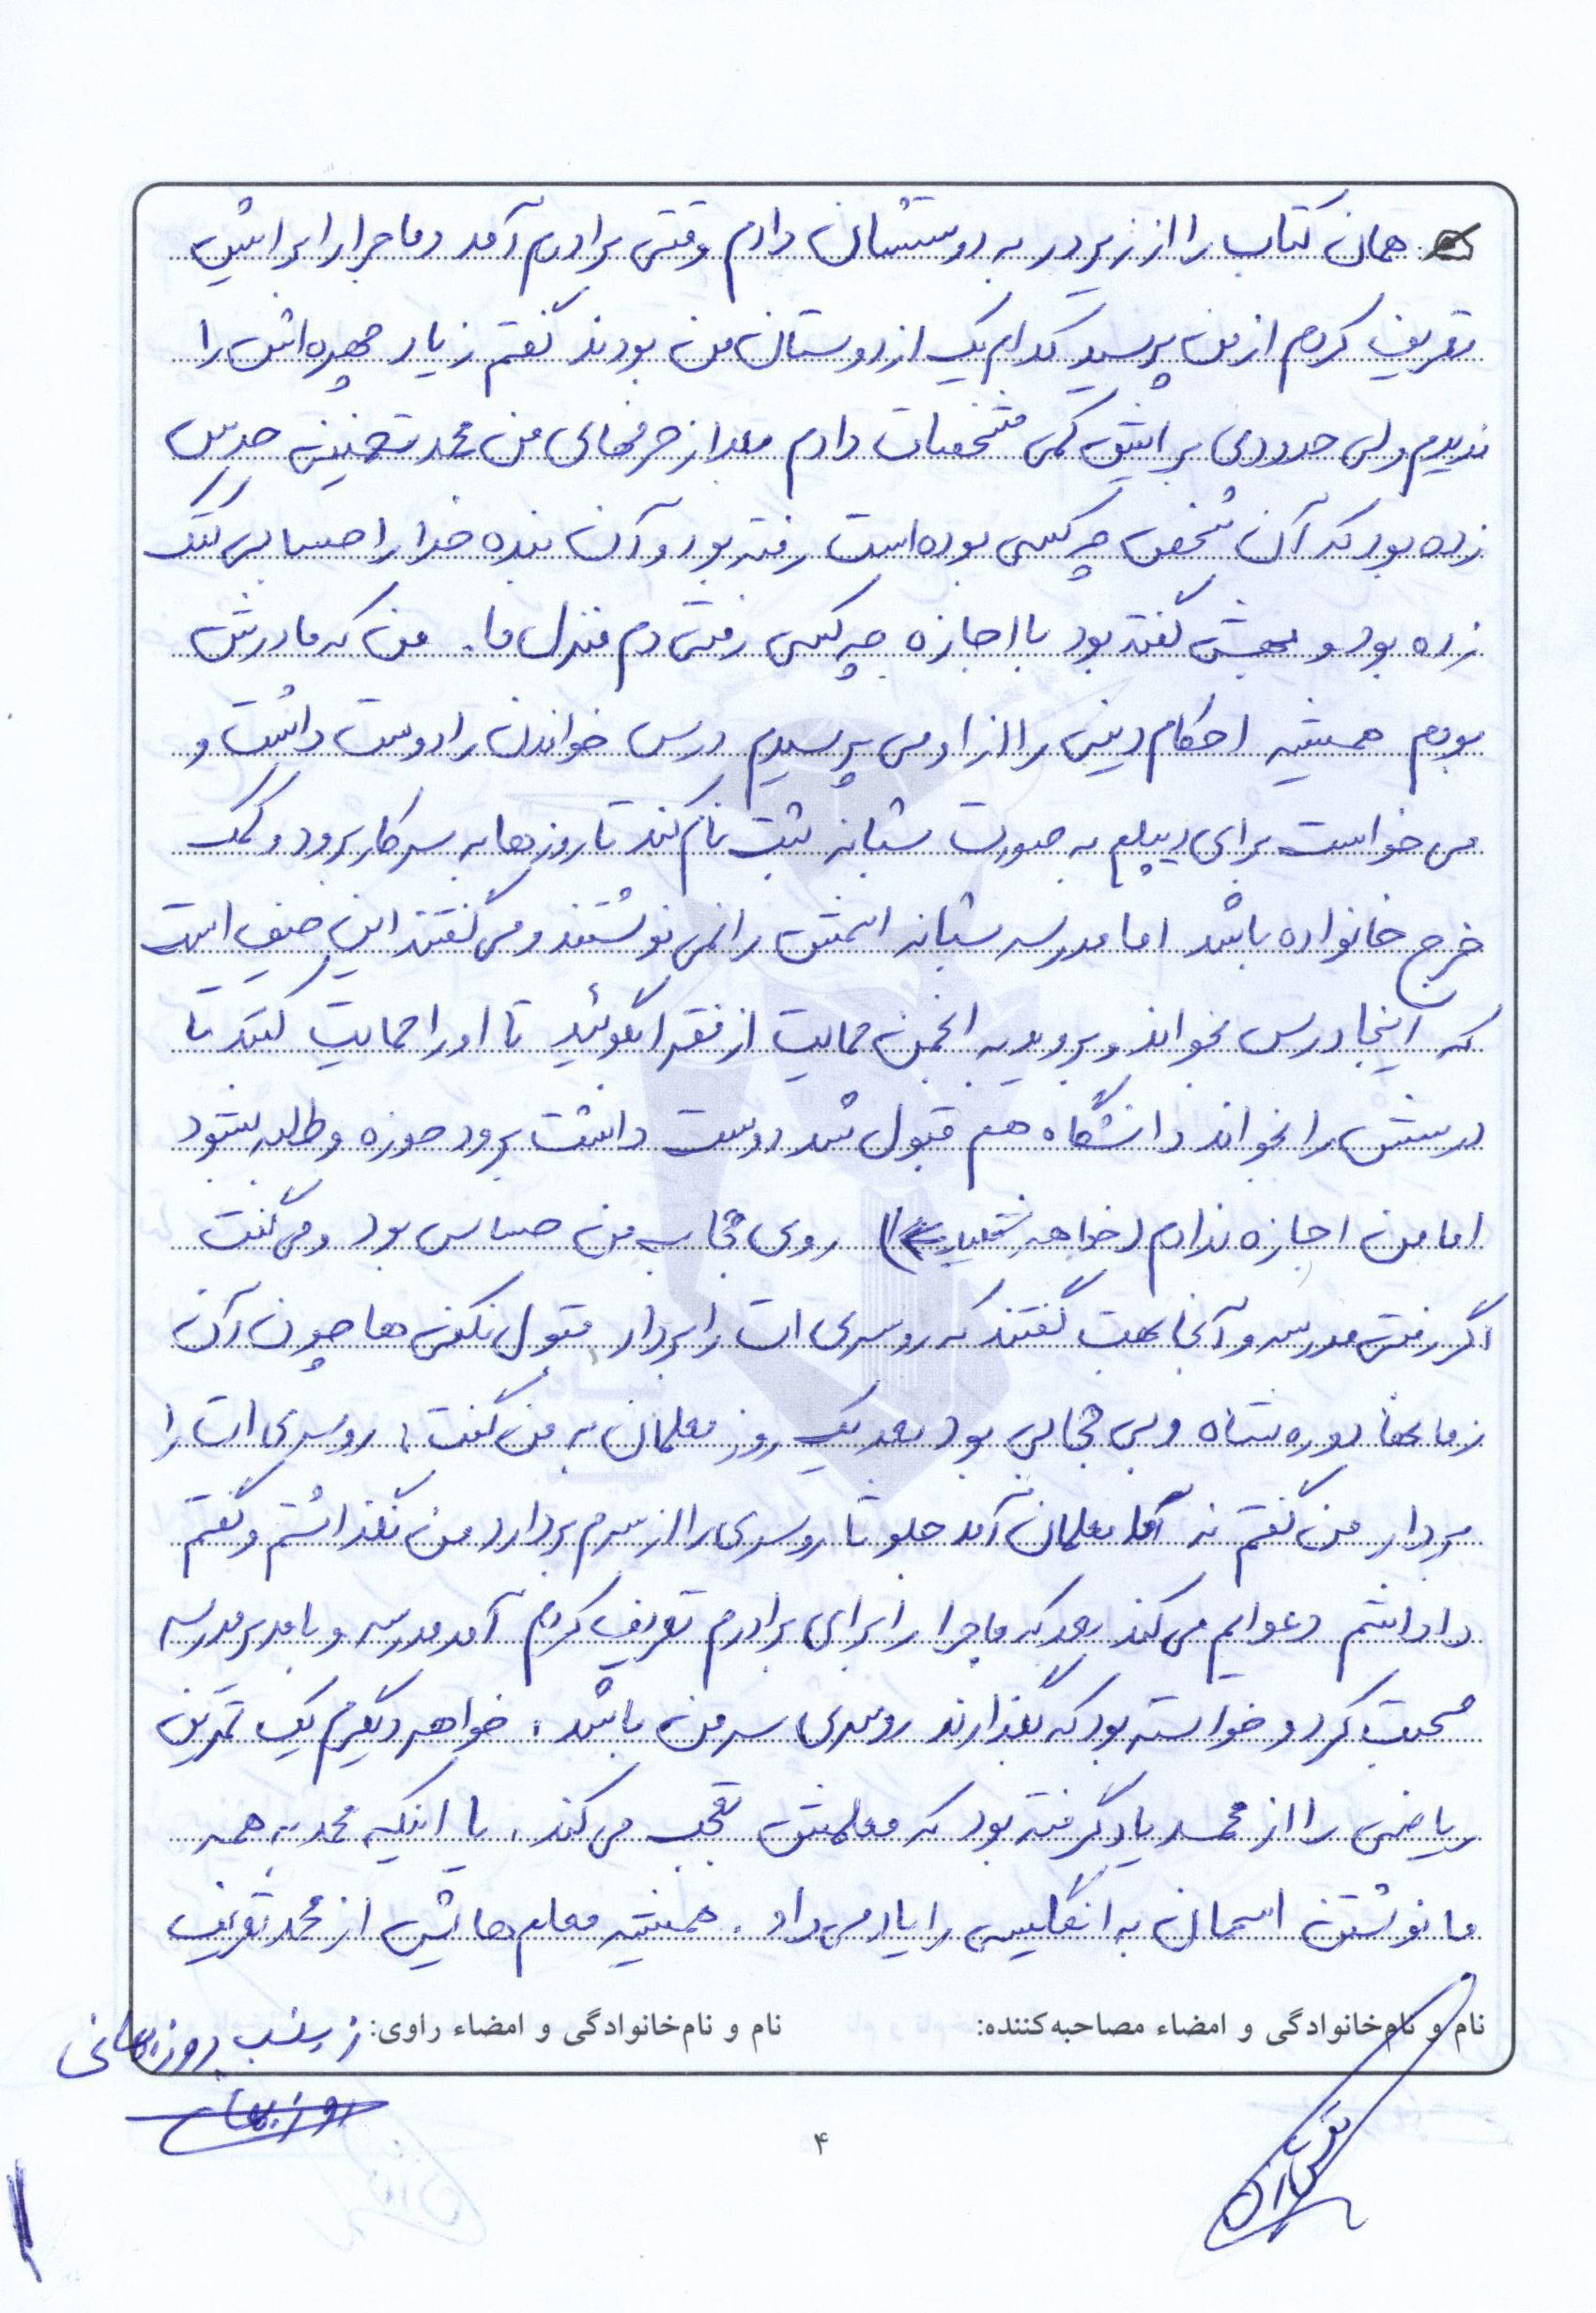 همان کتاب را از زیر در به دوستشان دادم وقتی برادرم آمد و ماجرا را برایش
تعریف کردم از من پرسید کدام یک از دوستان من بودند گفتم زیاد چهره اش را
ندیدم ولی حدودی برایش کمی مشخصات دادم بعد از حرفهای من محمد تخمینی حدس
زده بود که آن شخص چه کسی بوده است رفته بود و آن بنده خدا را حسابی کتک
زده بود و بهش گفته بود با اجازه چه کسی رفتی دم منزل ما. من که مادرش
بودم همیشه احکام دینی را از او می پرسیدم درس خواندن را دوست داشت و
می خواست برای دیپلم به صورت شبانه ثبت نام کند تا روزها به سر کار برود و کمک
خرج خانواده باشد اما مدرسه شبانه اسمش را نمی نوشتند و می گفتند این حیف است
که اینجا درس بخواند و بروید به انجمن حمایت از فقرا بگوئید تا او را حمایت کنند تا
درسش را بخواند دانشگاه هم قبول شد دوست داشت برود حوزه و طلبه بشود
اما من اجازه ندادم (خواهر شهید ←) روی حجاب من حساس بود و می گفت
اگر رفتی مدرسه و آنجا بهت گفتند که روسری ات را بردار قبول نکنی ها چون آن
زمانها دوره شاه و بی حجابی بود بعد یک روز معلمان به من گفت: روسری ات را
بردار من گفتم نه معلمان آمد جلو تا روسری را از سرم بردارد من نگذاشتم و گفتم
داداشم دعوایم می کند بعد که ماجرا را برای برادرم تعریف کردم آمد مدرسه و با مدیر مدرسه
صحبت کرد و خواسته بود که بگذارند روسری سر من باشد. خواهر دیگرم یک تمرین
ریاضی را از محمد یاد گرفته بود که معلمش تعجب می کند. یا اینکه محمد به همه
ما نوشتن اسمان به انگلیسی را یاد می داد. همیشه معلم هایش از محمد تعریف
نام و نام‌خانوادگی و امضاء مصاحبه‌کننده: نام و نام‌خانوادگی و امضاء راوی: زینب روزبهانی
روزبهانی
۴